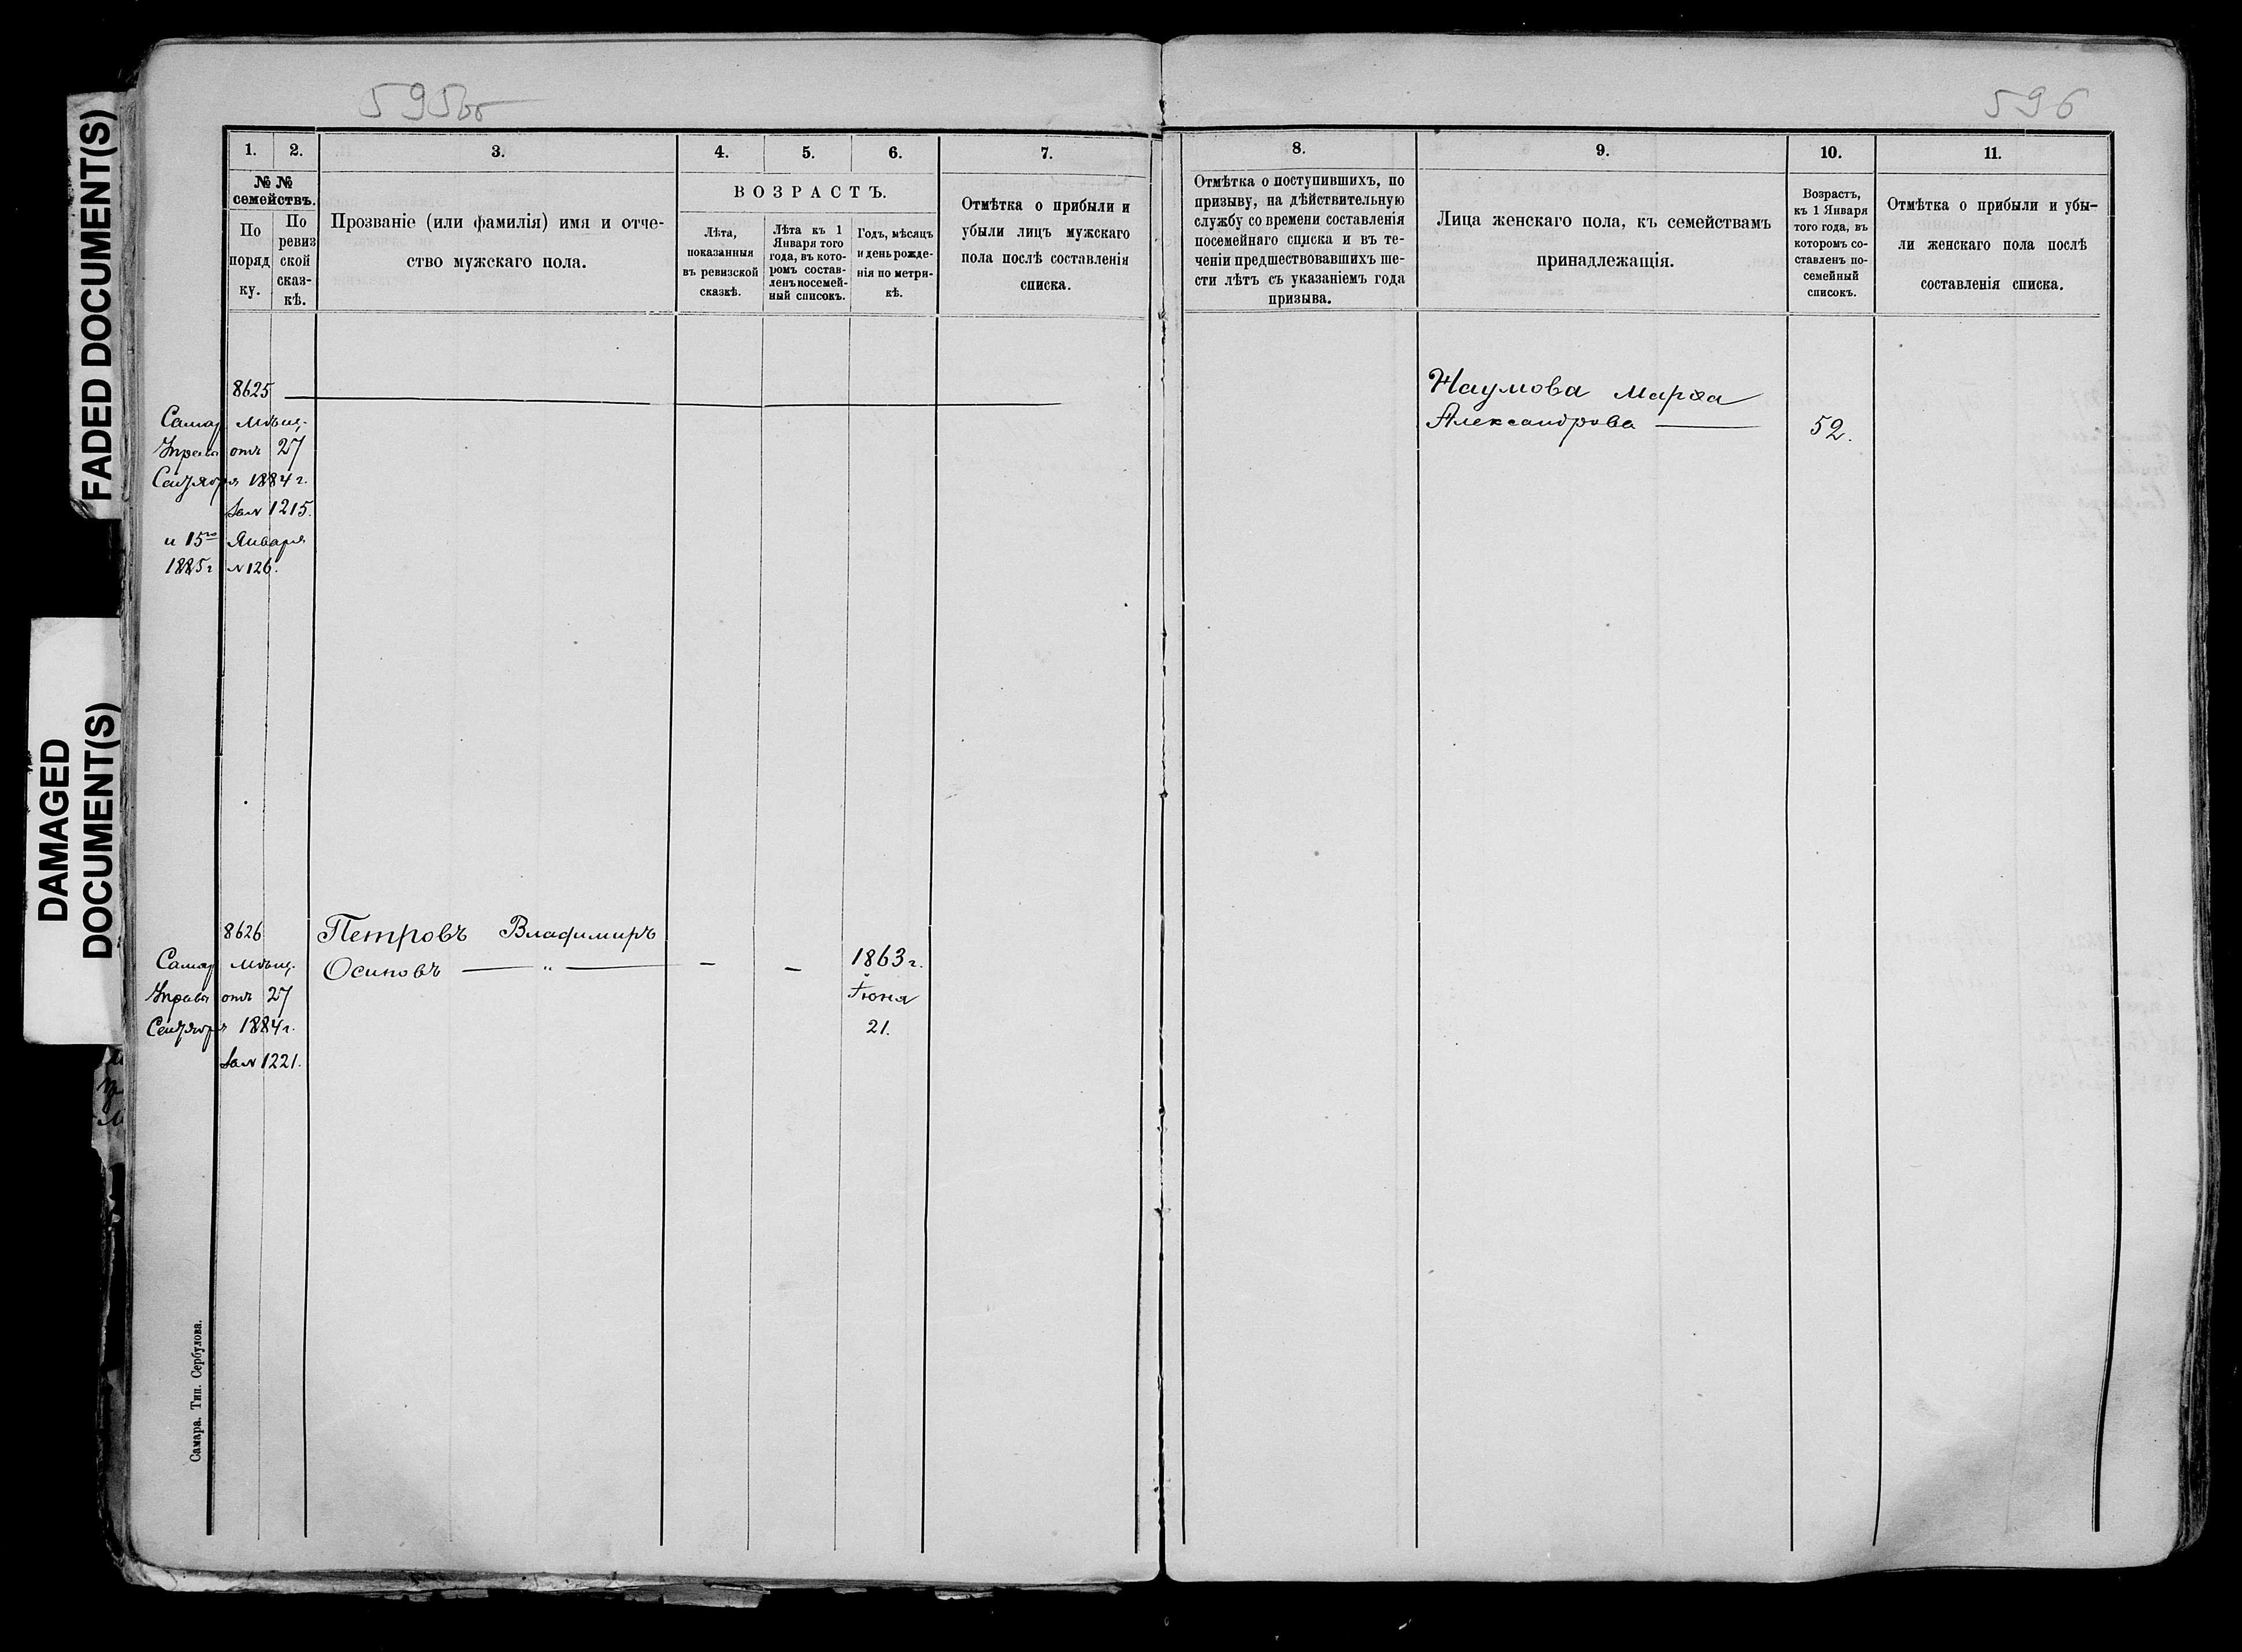 FADED DOCUMENT(S)
DAMAGED
DOCUMENT(S)
595об
1.
2.
3.
4.
5.
6.
7.
№ №
семействъ.
По
поряд
ку.
По
ревиз
ской
сказ-
кѣ.
Прозваніе (или фамилія) имя и отче-
ство мужскаго пола.
ВОЗРАСТЪ.
Лѣта,
показанныя
въ ревизской
сказкѣ.
Лѣта къ 1
Января того
года, въ кото-
ромъ состав-
ленъ посемей-
ный списокъ.
Годъ, мѣсяцъ
и день рожде-
нія по метри-
кѣ.
Отмѣтка о прибыли и
убыли лицъ мужскаго
пола послѣ составленія
списка.
8625
Самар Мѣщ.
Управы отъ 27
Сентября 1884 г.
за N 1215.
и 15го Января
1885 г N 126.
8626
Самар Мѣщ.
Управы отъ 27
Сентября 1884 г.
за N 1221.
Петровъ Владимиръ
Осиповъ — „ — — —
1863 г.
Іюня
21.
Самара. Тип. Сербулова.
596
8.
9.
10.
11.
Отмѣтка о поступившихъ, по
призыву, на дѣйствительную
службу со времени составленія
посемейнаго списка и въ те-
ченіи предшествовавшихъ ше-
сти лѣтъ съ указаніемъ года
призыва.
Лица женскаго пола, къ семействамъ
принадлежащія.
Возрастъ,
къ 1 Января
того года, въ
которомъ со-
ставленъ по-
семейный
списокъ.
Отмѣтка о прибыли и убы-
ли женскаго пола послѣ
составленія списка.
Наумова Марѳа
Александрова —
52.